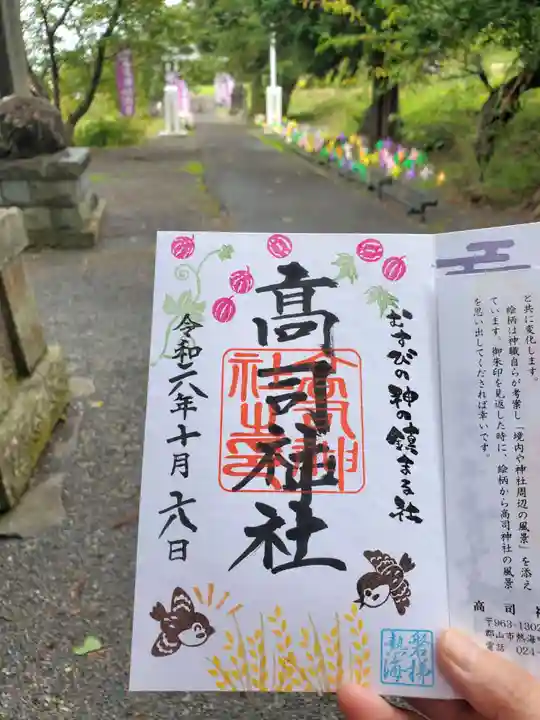 むすびの神の鎮まる社
高司神社
令和六年十月六日
磐梯
熱海
と共に変化します。
絵柄は神職自らが考案し「境内や神社周辺の風景」を添え
ています。御朱印を見返した時に、絵柄から高司神社の風景
を思い出してくだされば幸いです。
高司神
〒963-1302
郡山市熱海
電話 024-